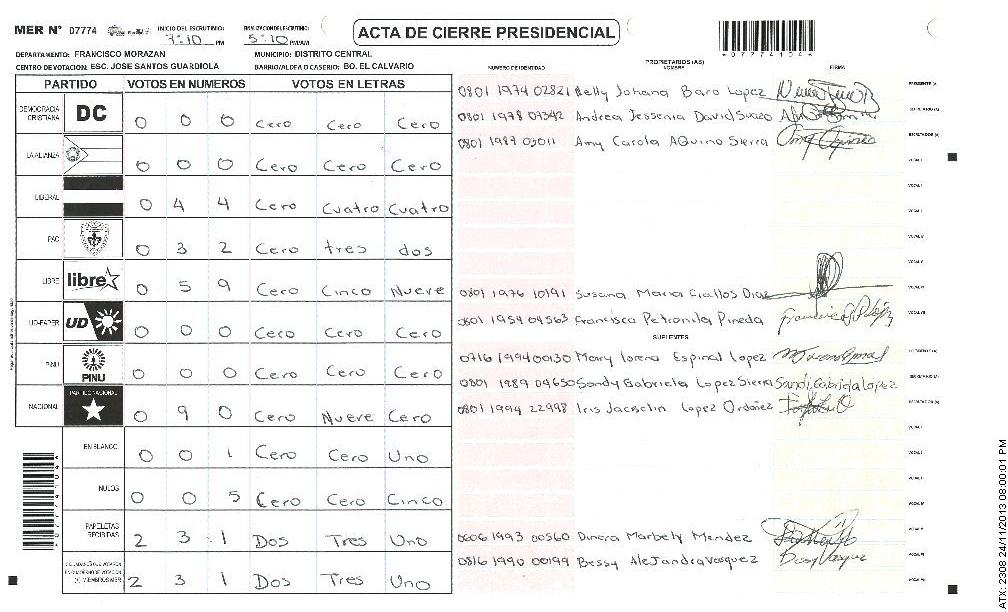 MER N° 07774 INICIO DEL ESCRUTINIO: 7:10 PM FINALIZACION ESCRUTINIO: 5:10 PM/AM
ACTA DE CIERRE PRESIDENCIAL
*07774104*
DEPARTAMENTO: FRANCISCO MORAZAN MUNICIPIO: DISTRITO CENTRAL
CENTRO DE VOTACION: ESC. JOSE SANTOS GUARDIOLA BARRIO/ALDEA O CASERIO: BO. EL CALVARIO
PARTIDO VOTOS EN NUMEROS VOTOS EN LETRAS
DEMOCRACIA CRISTIANA DC 0 0 0 Cero Cero Cero
LA ALIANZA 0 0 0 Cero Cero Cero
LIBERAL 0 4 4 Cero Cuatro Cuatro
PAC 0 3 2 Cero tres dos
LIBRE libre 0 5 9 Cero Cinco Nueve
UD-FAPER UD 0 0 0 Cero Cero Cero
PINU PINU 0 0 0 Cero Cero Cero
NACIONAL PARTIDO NACIONAL 0 9 0 Cero Nueve Cero
EN BLANCO 0 0 1 Cero Cero Uno
NULOS 0 0 5 Cero Cero Cinco
PAPELETAS RECIBIDAS 2 3 1 Dos Tres Uno
CIUDADANOS QUE VOTARON EN CUADERNO DE VOTACION (+) MIEMBROS MER 2 3 1 Dos Tres Uno
NUMERO DE IDENTIDAD PROPIETARIOS (AS) NOMBRE FIRMA
0801 1974 02821 Belly Johana Baro Lopez PRESIDENTE (A)
0801 1978 09342 Andrea Jessenia David Suazo SECRETARIO (A)
0801 1987 03011 Amy Carola Aguino Sierra ESCRUTADOR (A)
VOCAL I
VOCAL II
VOCAL III
VOCAL IV
VOCAL V
0801 1976 10191 Susana Maria Giallos Diaz VOCAL VI
0801 1954 04563 Francisca Petronila Pineda VOCAL VII
SUPLENTES
0716 1994 00130 Mary lorena Espinal Lopez PRESIDENTE (A)
0801 1989 04650 Sandy Gabriela Lopez Sierra Sandi Gabriela Lopez SECRETARIO (A)
0801 1994 22998 Iris Jackelin Lopez Ordoñez ESCRUTADOR (A)
VOCAL I
VOCAL II
VOCAL III
VOCAL IV
0606 1993 00560 Dinora Marbely Mendez VOCAL V
0816 1990 00199 Bessy Alejandra Vasquez Bessy Vasquez VOCAL VI
VOCAL VII
ATX: 2308 24/11/2013 08:00:01 PM